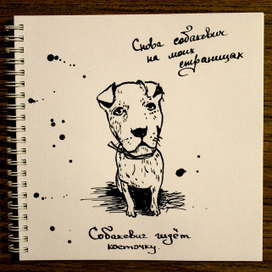 Снова собакевич
на моих
страницах
Собакевич ждёт
косточку.